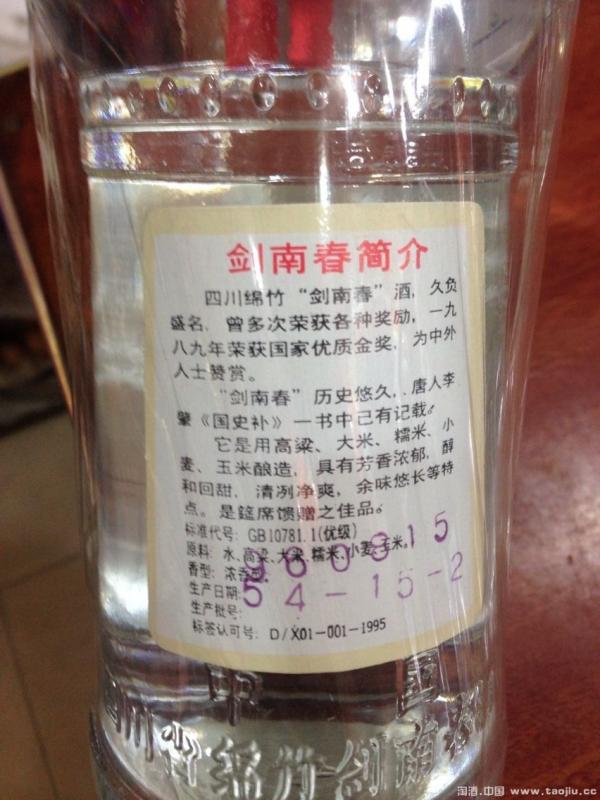 剑南春简介
四川绵竹“剑南春”酒，久负
盛名，曾多次荣获各种奖励，一九
八九年荣获国家优质金奖，为中外
人士赞赏。
“剑南春”历史悠久，唐人李
肇《国史补》一书中已有记载。
它是用高粱、大米、糯米、小
麦、玉米酿造，具有芳香浓郁，醇
和回甜，清冽净爽，余味悠长等特
点。是筵席馈赠之佳品。
标准代号：GB10781.1(优级)
原料：水、高粱、大米、糯米、小麦、玉米。
香型：浓香型
生产日期：960815
生产批号：54-15-2
标签认可号：D/X01-001-1995
中国
四川省绵竹剑南春
淘酒.中国 www.taojiu.cc